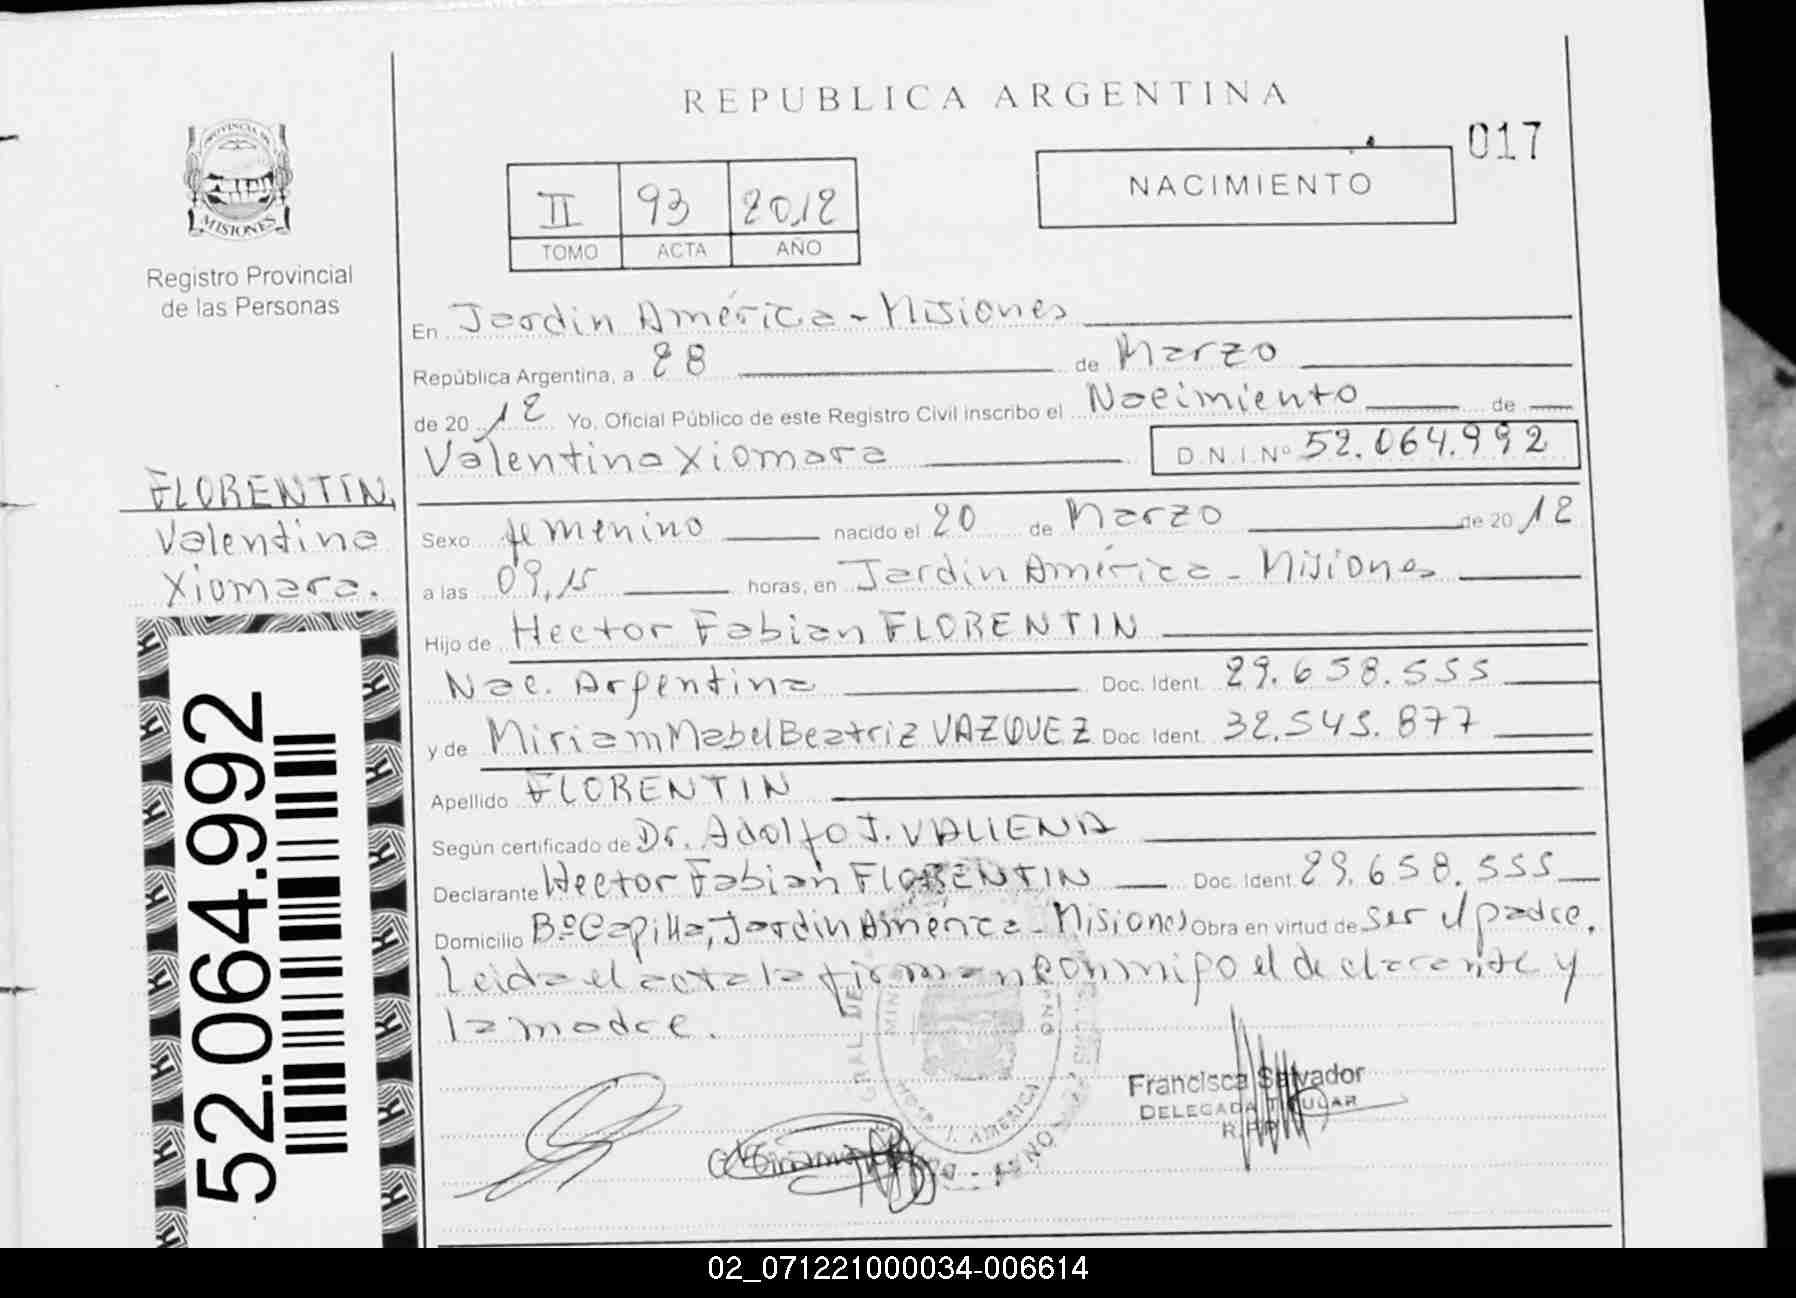 REPUBLICA ARGENTINA
017
PROVINCIA DE
MISIONES
Registro Provincial
de las Personas
II 93 2012
TOMO ACTA AÑO
NACIMIENTO
En Jardin América - Misiones
República Argentina, a 28 de Marzo
de 2012 Yo, Oficial Público de este Registro Civil inscribo el Nacimiento de
Valentina Xiomara D.N.I. Nº 52.064.992
FLORENTIN,
Valentina
Xiomara.
Sexo femenino nacido el 20 de Marzo de 2012
a las 09,15 horas, en Jardin América - Misiones
Hijo de Hector Fabian FLORENTIN
Nac. Argentina Doc. Ident. 29.658.555
y de Miriam Mabel Beatriz VAZQUEZ Doc. Ident. 32.545.877
Apellido FLORENTIN
Según certificado de Dr. Adolfo J. VALIENA
Declarante Hector Fabian FLORENTIN Doc. Ident. 29.658.555
Domicilio Bº Capilla, Jardin América - Misiones Obra en virtud de ser el padre.
Leida el acta la firman conmigo el declarante y
la madre.
52.064.992
Francisca Salvador
DELEGADA TITULAR
R.P.P.
J. AMERICA
02_071221000034-006614